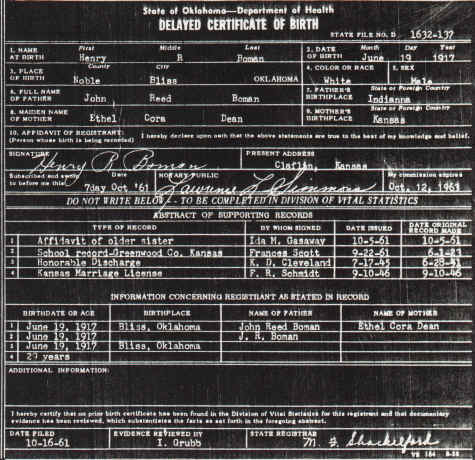 State of Oklahoma—Department of Health
DELAYED CERTIFICATE OF BIRTH
STATE FILE NO. D 1632-137
1. NAME AT BIRTH First Middle Last
Henry R Boman
2. DATE OF BIRTH Month Day Year
June 19 1917
3. PLACE OF BIRTH County City
Noble Bliss OKLAHOMA
4. COLOR OR RACE 5. SEX
White Male
6. FULL NAME OF FATHER
John Reed Boman
7. FATHER'S BIRTHPLACE State or Foreign Country
Indianna
8. MAIDEN NAME OF MOTHER
Ethel Cora Dean
9. MOTHER'S BIRTHPLACE State or Foreign Country
Kansas
10. AFFIDAVIT OF REGISTRANT: I hereby declare upon oath that the above statements are true to the best of my knowledge and belief.
(Person whose birth is being recorded)
SIGNATURE PRESENT ADDRESS
Henry R. Boman Claflin, Kansas
Subscribed and sworn to before me this Date NOTARY PUBLIC My commission expires
7day Oct '61 Simmons Oct. 12, 1961
DO NOT WRITE BELOW - TO BE COMPLETED IN DIVISION OF VITAL STATISTICS
ABSTRACT OF SUPPORTING RECORDS
TYPE OF RECORD BY WHOM SIGNED DATE ISSUED DATE ORIGINAL RECORD MADE
1 Affidavit of older sister Ida M. Gasaway 10-5-61 10-5-61
2 School record-Greenwood Co. Kansas Frances Scott 9-22-61 6-1-23
3 Honorable Discharge K. D. Cleveland 7-17-45 6-28-
4 Kansas Marriage License F. R. Schmidt 9-10-46 9-10-46
INFORMATION CONCERNING REGISTRANT AS STATED IN RECORD
BIRTHDATE OR AGE BIRTHPLACE NAME OF FATHER NAME OF MOTHER
1 June 19, 1917 Bliss, Oklahoma John Reed Boman Ethel Cora Dean
2 June 19, 1917 J. R. Boman
3 June 19, 1917 Bliss, Oklahoma
4 29 years
ADDITIONAL INFORMATION:
I hereby certify that no prior birth certificate has been found in the Division of Vital Statistics for this registrant and that documentary
evidence has been reviewed, which substantiates the facts as set forth in the foregoing abstract.
DATE FILED EVIDENCE REVIEWED BY STATE REGISTRAR
10-16-61 I. Grubb M. J. Shackelford
VS 184